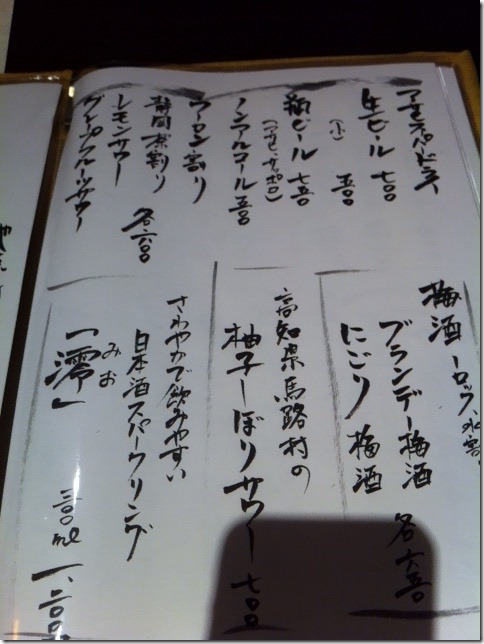 アサヒスーパードライ
生ビール 七〇〇
(小) 五〇〇
瓶ビール 七五〇
(アサヒ・サッポロ)
ノンアルコール 五〇〇
ウーロン割り
静岡茶割り
レモンサワー 各六〇〇
グレープフルーツサワー
梅酒 ーロック、水割
ブランデー梅酒
にごり梅酒 各六五〇
高知県馬路村の
柚子しぼりサワー 七〇〇
さわやかで飲みやすい
日本酒スパークリング
「澪」
みお
三〇〇ml 一、二〇〇